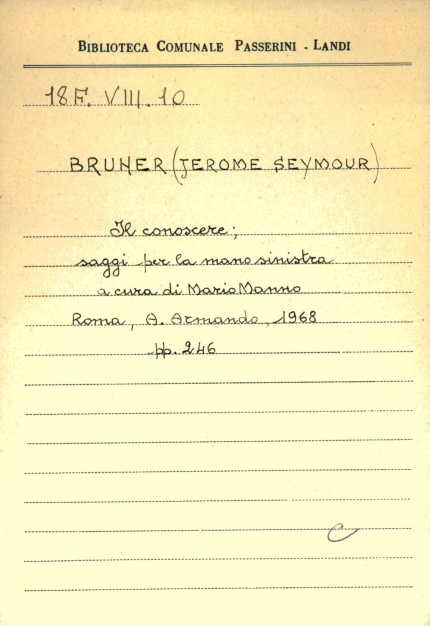 BIBLIOTECA COMUNALE PASSERINI - LANDI
18F. VIII. 10
BRUNER (JEROME SEYMOUR)
Il conoscere;
saggi per la mano sinistra
a cura di Mario Manno
Roma, A. Armando, 1968
pp. 246
C